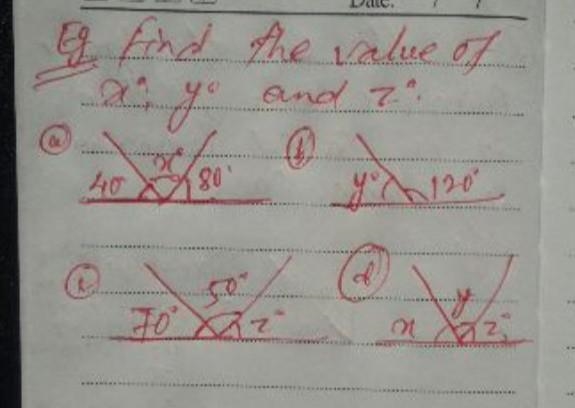 Date: / /
Eg find the value of
x°, y° and z°.
(a) 40 x° 80°
(b) y° 120°
(c) 70° 50° z°
(d) x y z°